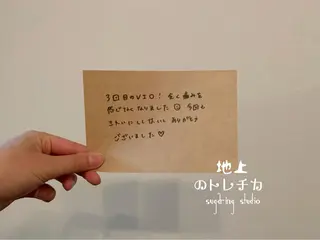 3回目のVIO! 全く痛みを
感じなくなりました☺ 今回も
きれいにしてもらいありがとう
ございました♡
地上
のトレチカ
sugaring studio